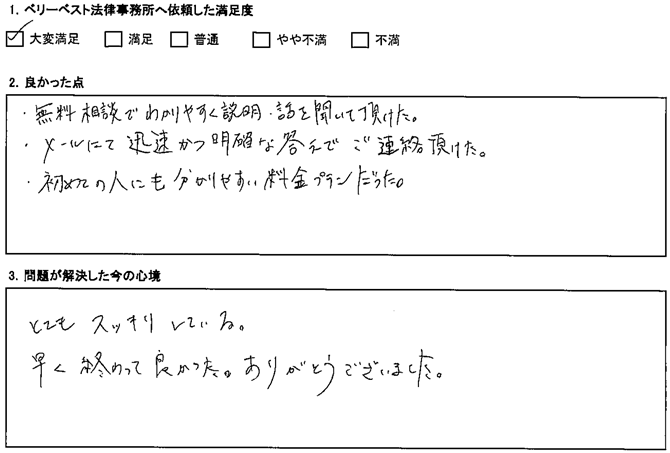 1. ベリーベスト法律事務所へ依頼した満足度
大変満足 満足 普通 やや不満 不満
2. 良かった点
・無料相談でわかりやすく説明・話を聞いて頂けた。
・メールにて迅速かつ明確な答えでご連絡頂けた。
・初めての人にも分かりやすい料金プランだった。
3. 問題が解決した今の心境
とてもスッキリしている。
早く終わって良かった。ありがとうございました。